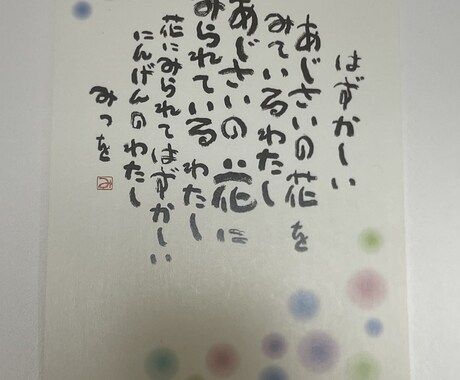 はずかしい
あじさいの花を
みているわたし
あじさいの花に
みられているわたし
花にみられてはずかしい
にんげんのわたし
みつを
み